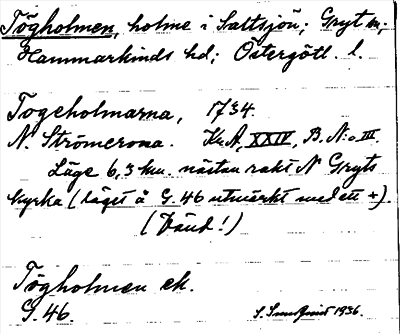 Tögholmen, holme i Saltsjön; Gryt sn;
Hammarkinds hd; Östergötl. l.
Togeholmarna, 1734.
N. Strömerona. Kr.A, XXIV, B. N:o III.
Läge 6,3 km. nästan rakt N Gryts
kyrka (läget å G.46 utmärkt med ett +).
(Vänd!)
Tögholmen ek.
G. 46.
S. Sundquist 1936.